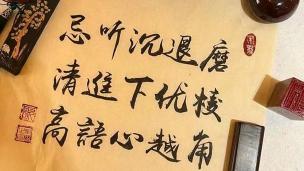 磨棱角
退优越
沉下心
听進語
忌清高